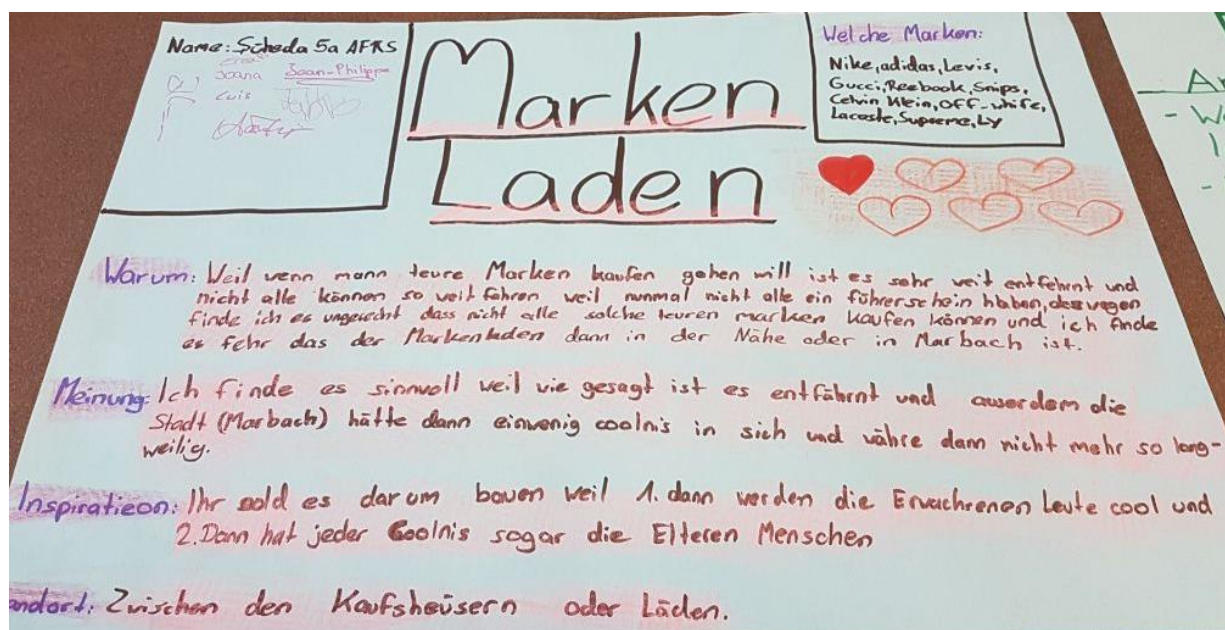 Name: Scheda 5a AFKS
Joana Joan-Philipp
Luis
Marken
Laden
Welche Marken:
Nike, adidas, Levis,
Gucci, Reebook, Snips,
Celvin Klein, Off-white,
Lacoste, Supreme, Ly
Warum: Weil wenn mann teure Marken kaufen gehen will ist es sehr weit entfehrnt und
nicht alle können so weit fahren weil nunmal nicht alle ein führerschein haben, deswegen
finde ich es ungerecht dass nicht alle solche teuren marken kaufen können und ich finde
es fehr das der Markenladen dann in der Nähe oder in Marbach ist.
Meinung: Ich finde es sinnvoll weil wie gesagt ist es entfährnt und auserdem die
Stadt (Marbach) hätte dann einwenig coolnis in sich und währe dann nicht mehr so lang-
weilig.
Inspiratieon: Ihr sold es darum bauen weil 1. dann werden die Erwachrenen Leute cool und
2. Dann hat jeder Coolnis sogar die Elteren Menschen
andort: Zwischen den Kaufsheüsern oder Läden.